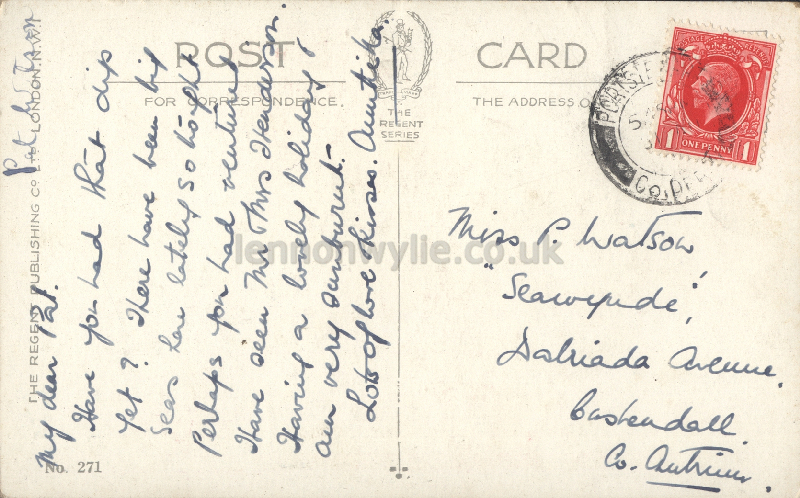 POST CARD
FOR CORRESPONDENCE.
THE ADDRESS O
THE REGENT SERIES
THE REGENT PUBLISHING CO LTD LONDON
No. 271
Pat Watson
My dear Pat.
Have you had that dip
yet? There have been big
seas here lately so thought
perhaps you had ventured
Have seen Mr & Mrs Henderson.
Having a lovely holiday &
am very sunburnt-
Lots of love & kisses.
PORTSTE
Co.
POSTAGE REVENUE
1 ONE PENNY 1
Miss P. Watson
"Seawynde",
Dalriada Avenue,
Cushendall
Co. Antrim.
lennonwylie.co.uk